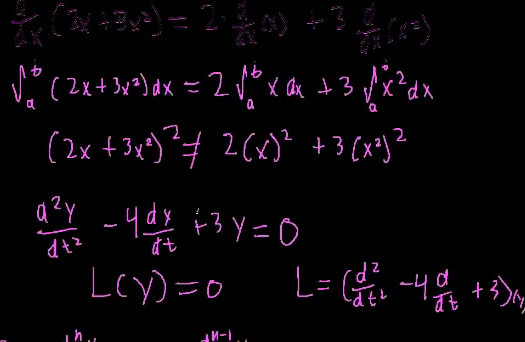 d/dx (2x+3x²) = 2·d/dx(x) + 3 d/dx(x²)
∫ₐᵇ (2x+3x²)dx = 2∫ₐᵇ x dx + 3∫ₐᵇ x² dx
(2x+3x²)² ≠ 2(x)² + 3(x²)²
d²y/dt² - 4 dy/dt + 3y = 0
L(y) = 0 L = (d²/dt² - 4 d/dt + 3)(y)